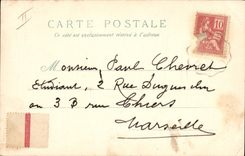 III
CARTE POSTALE
Ce côté est exclusivement réservé à l'adresse
10
Monsieur Paul Chevret
Etudiant, 2 Rue Duguesclin
ou 3 B rue Thiers
Marseille